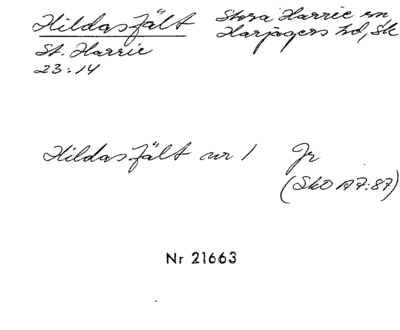 Hildasfält Stora Harrie sn
St. Harrie Harjagers hd, Sk
23:14
Hildasfält nr 1 Jr
(SkO A7:87)
Nr 21663